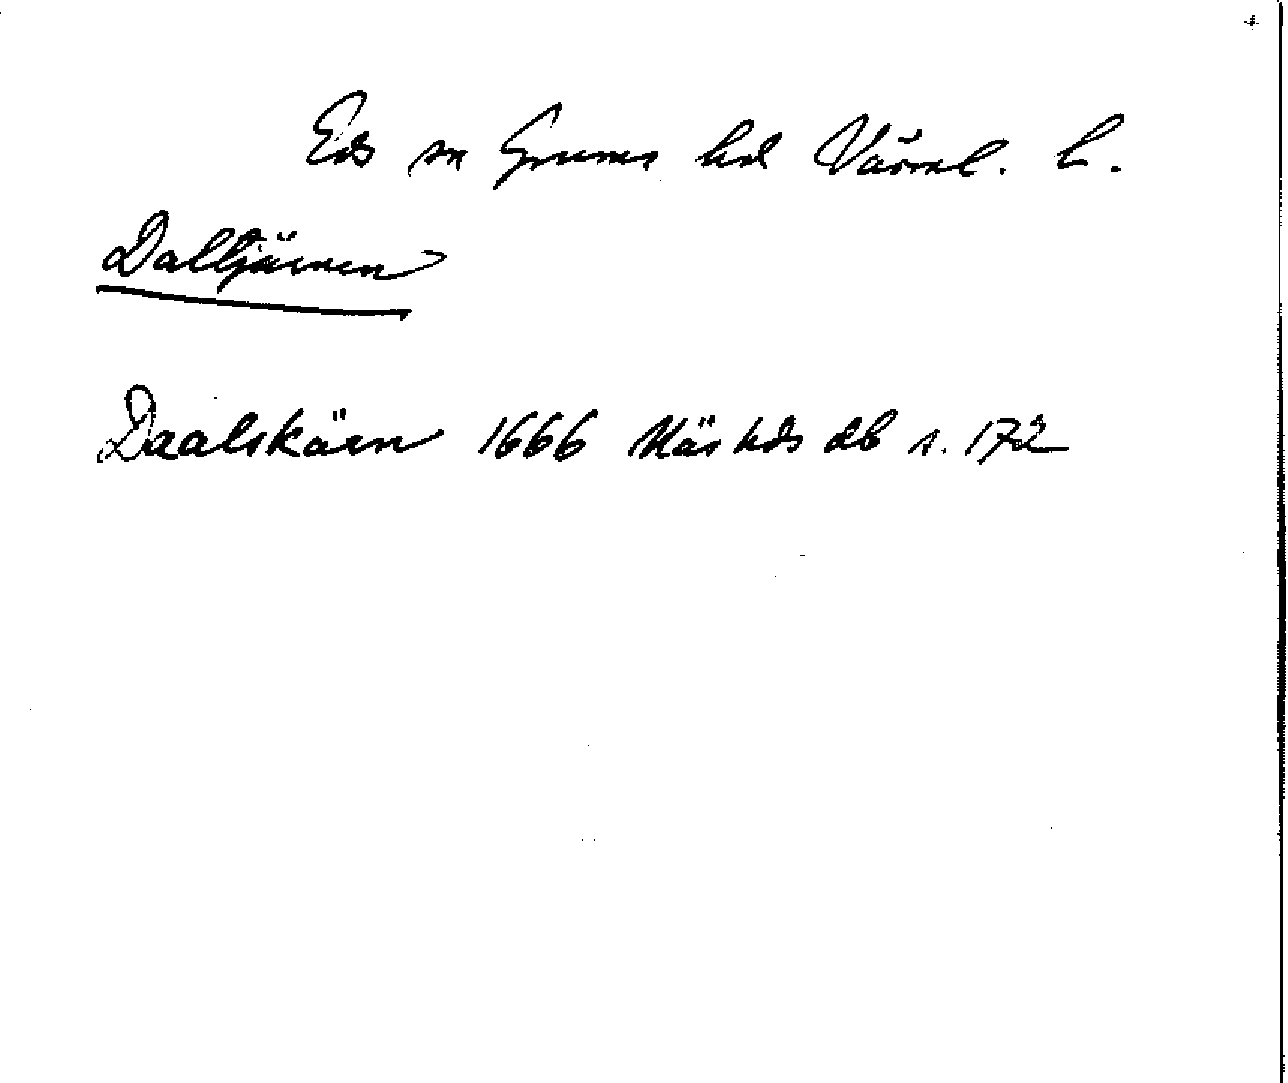 Eds sn Grums hd Värml. l.
Daltjärnen
Daalskärn 1666 Näs hds db s. 172